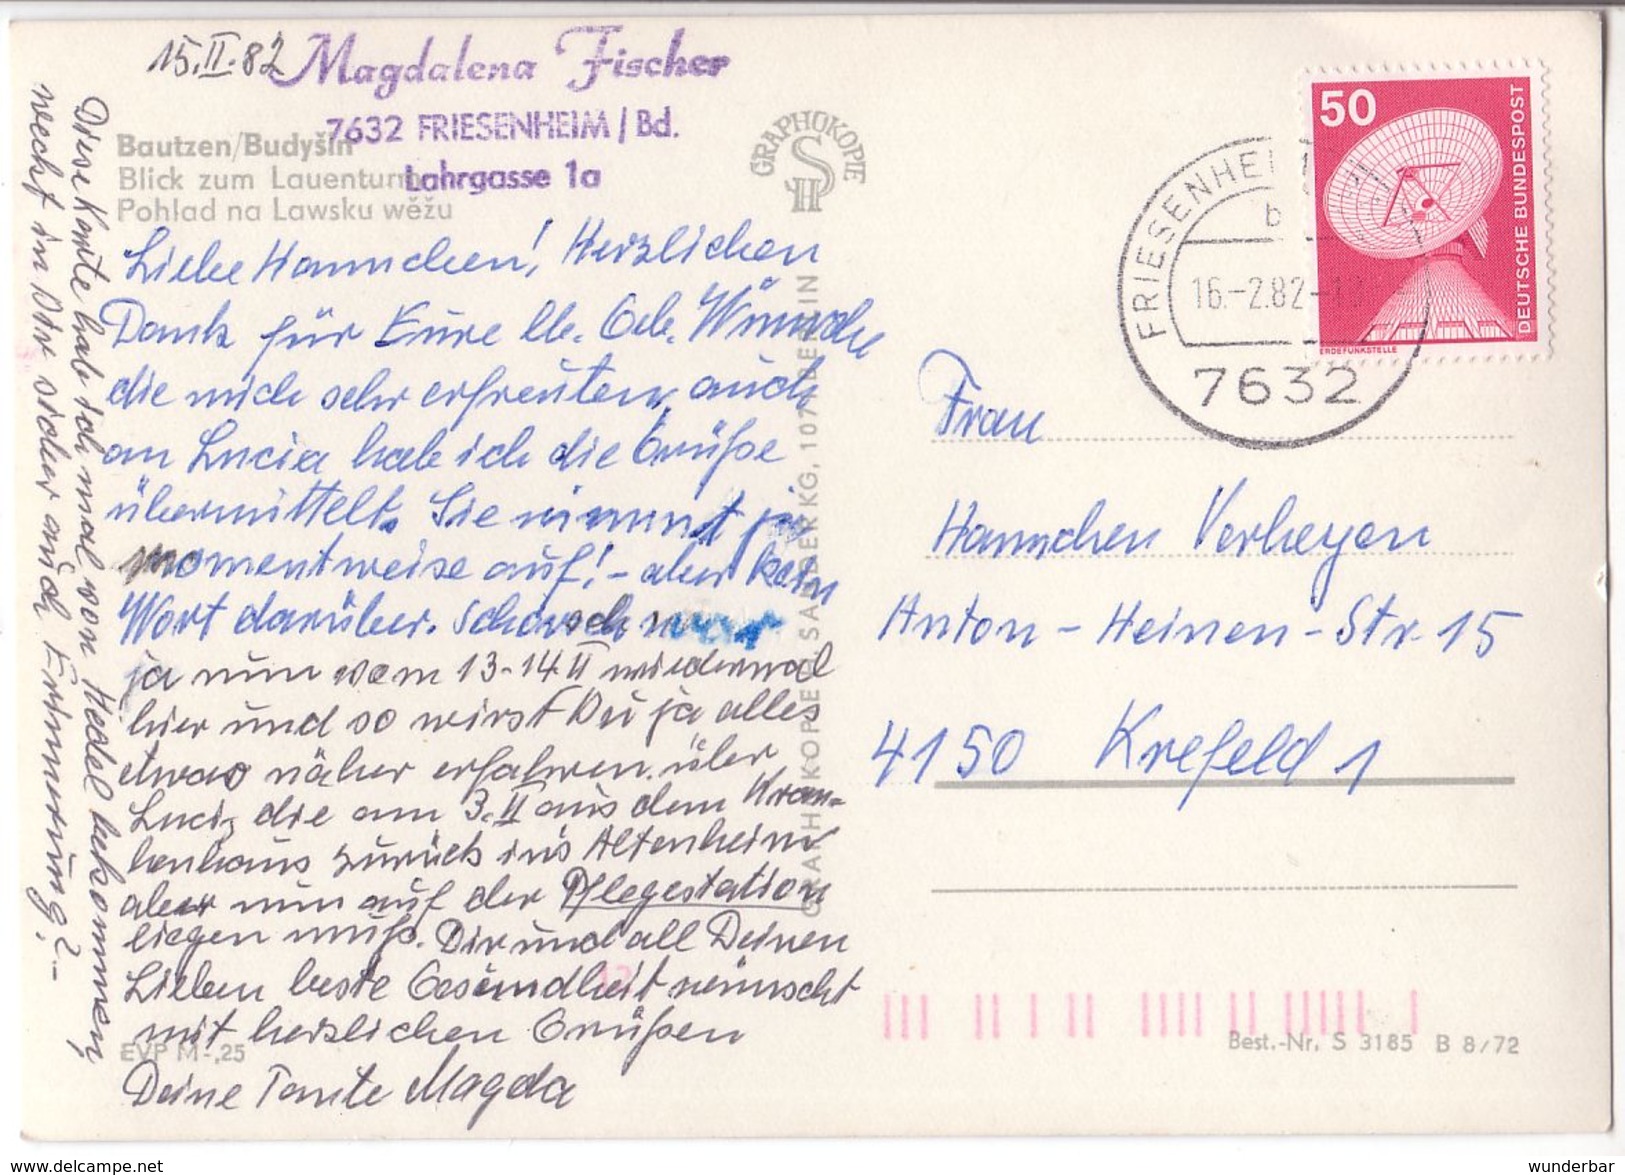 15.II.82
Magdalena Fischer
7632 FRIESENHEIM / Bd.
Lahrgasse 1a
Bautzen/Budyšin
Blick zum Lauenturm
Pohlad na Lawsku wěžu
GRAPHOKOPIE
SH
Liebe Hannchen! Herzlichen
Dank für Eure lb. Geb. Wünsche
die mich sehr erfreuten, auch
an Lucia hab ich die Grüße
übermittelt. Sie nimmt ja
momentweise auf! - aber kein
Wort darüber. Schorsch war
ja nun vom 13-14 II wiedermal
hier und so wirst Du ja alles
etwas näher erfahren über
Luci, die am 3.II aus dem Kran-
kenhaus zurück in's Altenheim
aber nun auf der Pflegestation
liegen muß. Dir und all Deinen
Lieben beste Gesundheit wünscht
mit herzlichen Grüßen
Deine Tante Magda
Diese Karte hab ich mal von Hedel bekommen,
weckt in Dir sicher auch Erinnerung? -
EVP M -,25
50
DEUTSCHE BUNDESPOST
ERDEFUNKSTELLE
FRIESENHEIM
b
16.-2.82-18
7632
Frau
Hannchen Verheyen
Anton-Heinen-Str. 15
4150 Krefeld 1
Best.-Nr. S 3185 B 8/72
wunderbar_cartes.delcampe.net
wunderbar